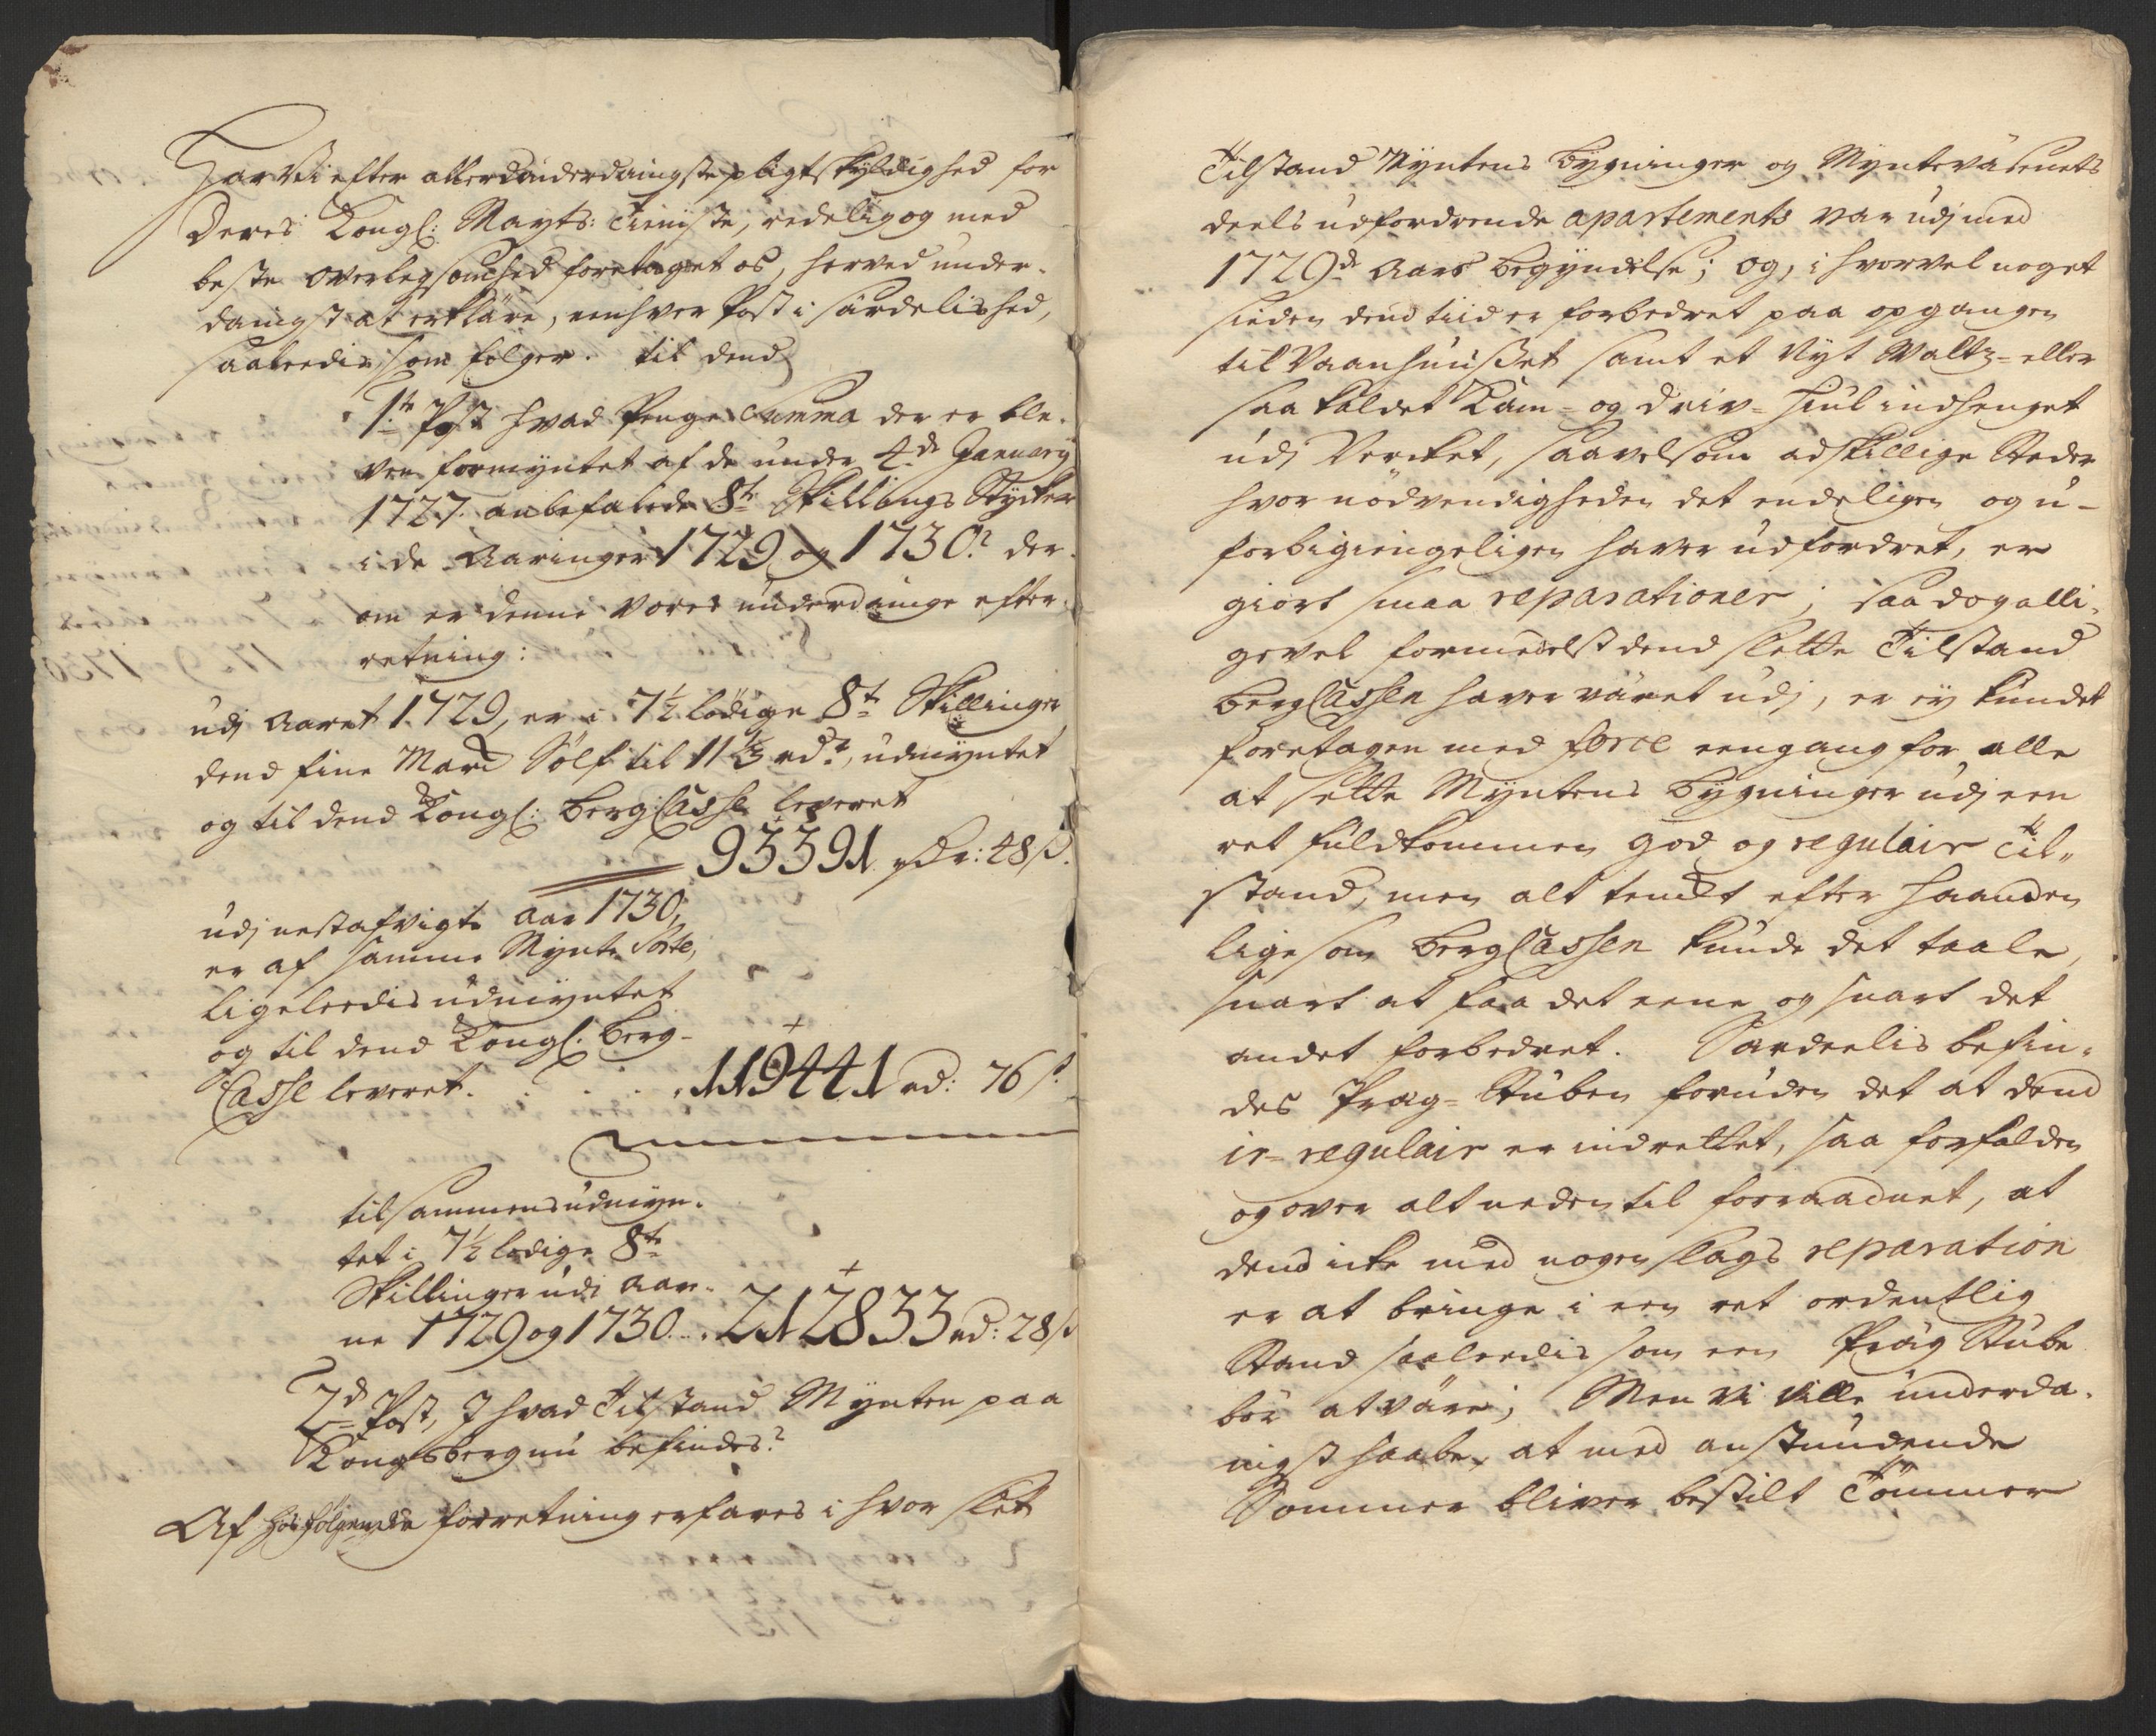 Har Vi efter allerunderdanigste pligtskyldighed for
Deres Kongl: Mayts: Tieniste, redelig og med
beste overlegsomhed foretaget os, herved under-
danigst at erklære, eenhver Post i særdelished,
saaleedis som følger. til dend
1te Post hvad Penge Summa der er ble-
ven formyntet af de under 4de January
1727 anbefalede 8te Skillings Stycker
i de Aaringer 1729 og 1730? der-
om er denne vores underdanige efter-
retning:
udj Aaret 1729, er i 7½ lödige 8te Skillinger
dend fine Marck Sölf til 11⅓ rdr, udmyntet
og til dend Kongl: Berg Casse leveret
93391 rdr: 48 s.
udj nestafvigte Aar 1730,
er af samme Mynte Sorte,
ligeleedis udmyntet
og til dend Kongl: Berg-
Casse leveret. . . . . 119441 rd: 76 s.
tilsammens udmyn-
tet i 7½ lödige 8te
Skillinger udi Aar-
ne 1729 og 1730 . . . 212833 rd: 28 s
2den Post, J hvad Tilstand Mynten paa
Kongsberg nu befindes?
Af hosfölgende forretning erfares i hvor slet
Tilstand Myntens Bygninger og Myntevæsenets
deels udfordrende apartements var udj med
1729de Aars begyndelse; og, i hvorvel noget
sieden dend tiid er forbedret paa opgangen
til Vaanhuuset samt et Nyt Waltz- eller
saa kaldet Kam- og Driv-Hiul indhenget
udj Vercket, saavelsom adskillige Steder
hvor nödvendigheden det endeligen og u-
forbigiengeligen haver udfordret, er
giort smaa reparationer; saa dog alli-
gevel formedelst dend slette Tilstand
Berg Cassen haver været udj, er ey kundet
foretagen med force eengang for alle
at sette Myntens Bygninger udj een
ret fuldkommen god og regulair Til-
stand, men alt tendt efter haanden
ligesom Berg Cassen kunde det taale,
snart at faa det eene og snart det
andet forbedret. Særdeelis befin-
des Præg-Stuben foruden det at dend
ir-regulair er indrettet, saa forfalden
og over alt neden til forraadnet, at
dend icke med nogen slags reparation
er at bringe i een ret ordentlig
Stand saaleedis som een Præg Stube
bör at være; Men vi ville underda-
nigst haabe, at med anstundende
Sommer bliver bestilt Tömmer